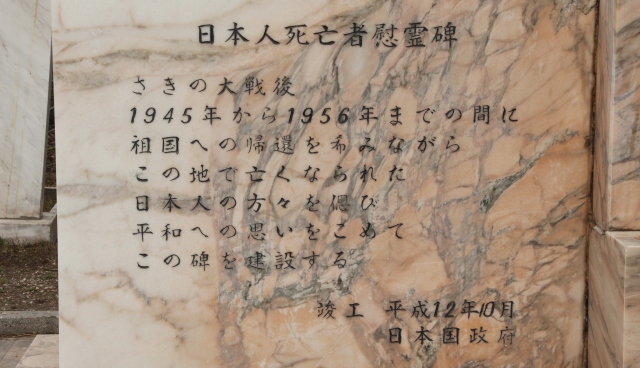 日本人死亡者慰霊碑
さきの大戦後
1945年から1956年までの間に
祖国への帰還を希みながら
この地で亡くなられた
日本人の方々を偲び
平和への思いをこめて
この碑を建設する
竣工 平成12年10月
日本国政府